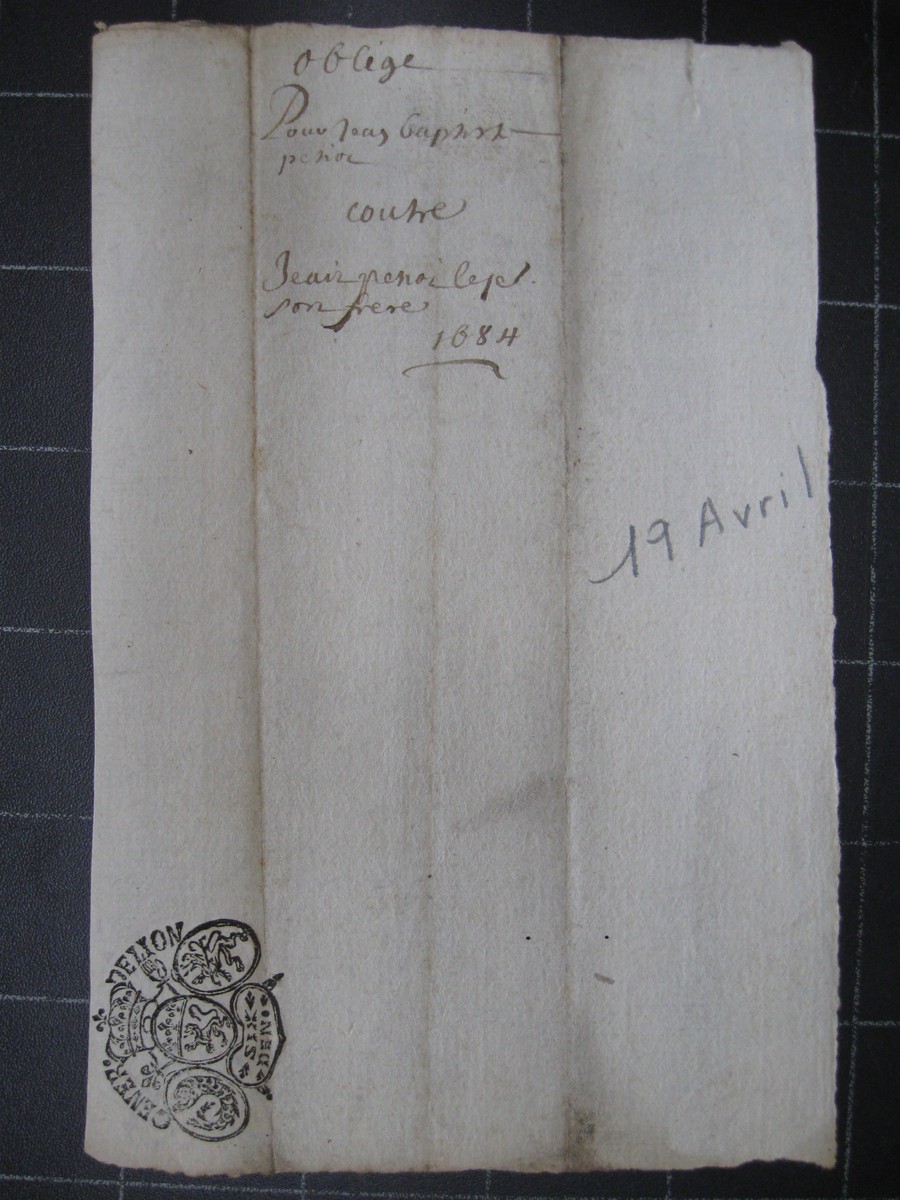 oblige
Pour Jean baptist
penoi
contre
Jean penoi
son frere
1684
19 Avril
GENER. DELION
SIX
DEN.